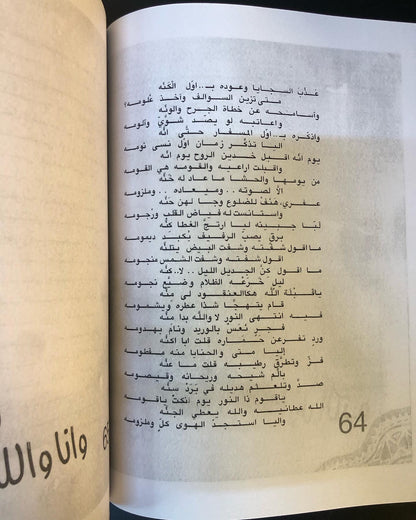 عذب السجايا وعوده بـ..اوّل الكنّه
متى تزين السوالف وآخذ علومه؟
واسامحه عن خطاة الجرح والونّه
واعاتبه لو يصدّ شويّ وألومه
واذكره بـ..اول المسفار حتّى انّه
اليا تذكّر زمان اوّل نسى نومه
يوم انّه اقبل خدين الروح يوم انّه
واقبلت اراعيه والقومه هي القومه
من يومها والحشا ما عاد له خنّه
الا لصوته..وميعاده..وملزومه
عفري، هتف للضلوع وجا لهن حنّه
واستانست له فياض القلب ورجومه
لنا جبينه ليا ارتجّ الغطا كنّه
برق يصبّ الرفيف بكبد ديمومه
ما اقول شفته وشفت البيض يتلنّه
اقول شفته وشفت الشمس منجومه
ما اقول كنّ الجديل الليل..لا..كنّه
ليل خزعه الظلام وضيّع نجومه
ياقبلة الله هكالعنقود لى منّه
قام يتهجّا شذا عطره ويشمومه
فيه انتهى النور لا والله بدا منّه
فجر نعس بالوريد ونام بهدومه
ورد نفر عن خماره قلت ابا اكنّه
إليا متى والحنايا منه مقطومه
فزّ وتطرّق رطيبه قلت ما عنّه
يالم شيحه وريحانه وقيصومه
صدّ وتلعثم هديله في برد سنّه
ياقوم ذا النور يوم انكتّ ياقومه
الله عطانيه والله يعطي الجنّه
واليا استجدّ الهوى كلّ وملزومه
64
وانا والله